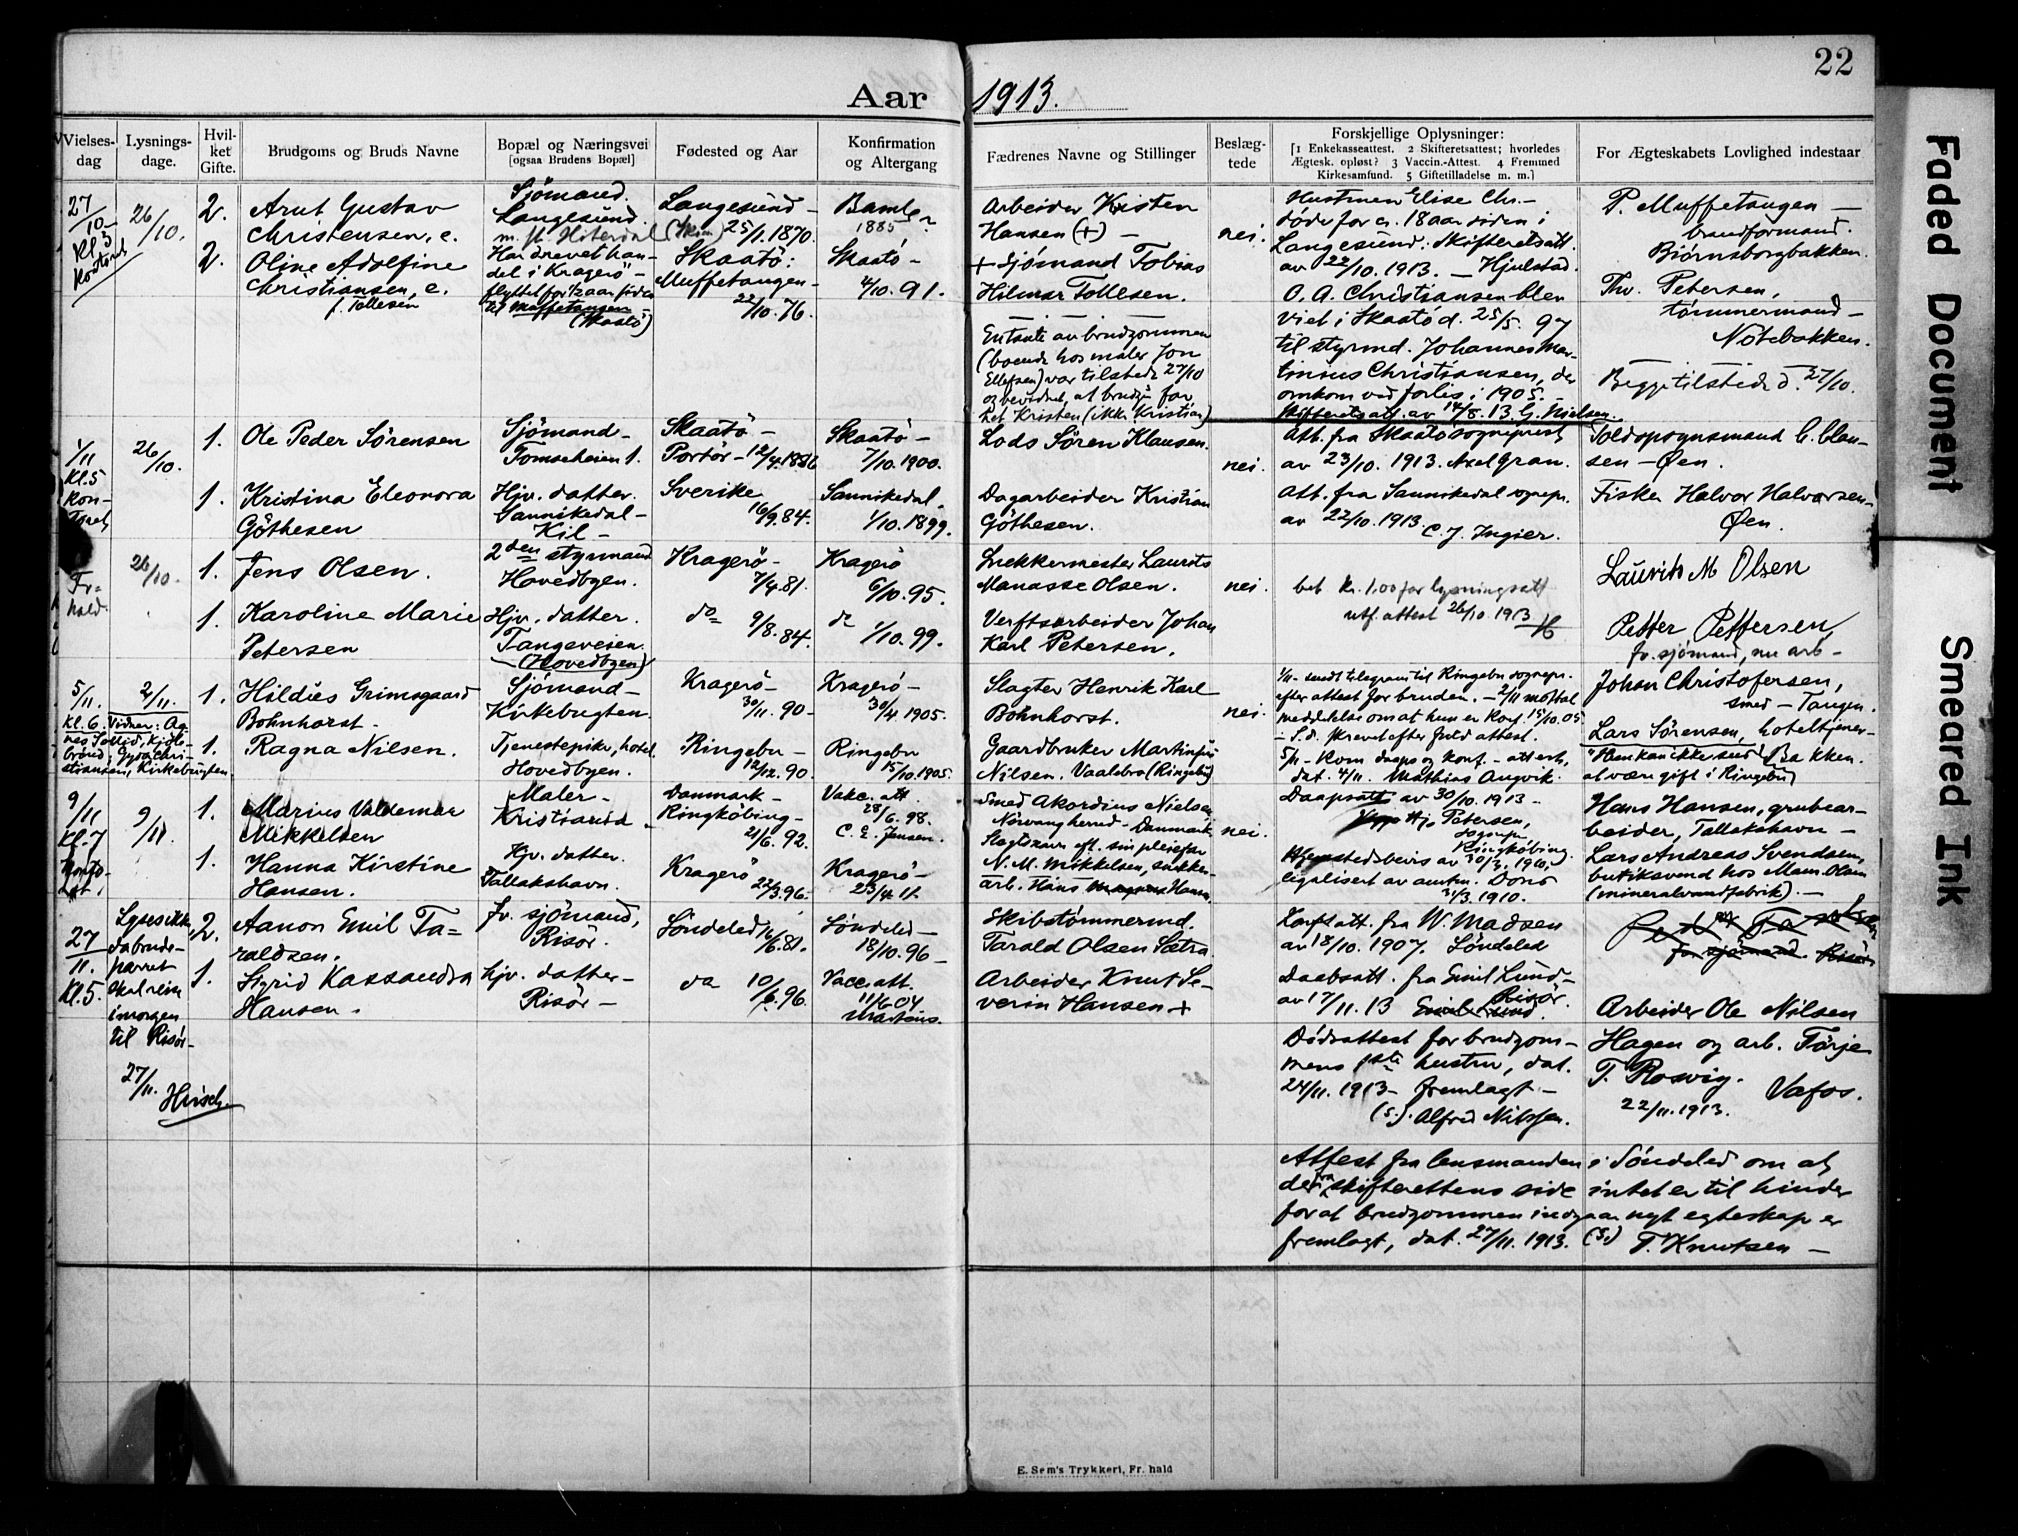 22
Aar 1913.
Vielses-dag
Lysnings-dage.
Hvil-ket Gifte.
Brudgoms og Bruds Navne
Bopæl og Næringsvei
[ogsaa Brudens Bopæl]
Fødested og Aar
Konfirmation
og Altergang
Fædrenes Navne og Stillinger
Beslæg-tede
Forskjellige Oplysninger:
[1 Enkekasseattest. 2 Skifteretsattest; hvorledes
Ægtesk. opløst? 3 Vaccin.-Attest. 4 Fremmed
Kirkesamfund. 5 Giftetilladelse m. m.]
For Ægteskabets Lovlighed indestaar
27/10
Kl 3
26/10.
2. Arnt Gustav
Christensen, e.
Sjømand.
Langesund
Langesund -
25/1. 1870.
Bamle
1885
Arbeider Kristen
Hansen (+) -
nei.
Hustruen Elise Chr.
døde for c. 18 aar siden i
Langesund. Skifteretsatt.
av 22/10. 1913. - Hjulstad.
P. Muffetangen -
brandformand.
Biørnsborgbakken.
2. Oline Adolfine
Christiansen, e.
f. Tollesen
Har drevet han-
del i Kragerö -
flyttet for 1/2 aar siden
til Muffetangen
(Skaatö)
Skaatö:
Muffetangen -
22/10. 76.
Skaatö -
4/10. 91.
+ Sjømand Tobias
Hilmar Tollesen.
En tante av brudgommen
(boende hos maler Jon
Ellefsen) var tilstede 27/10
og bevidnet, at brudg. far
het Kristen (ikke Kristian)
O. A. Christiansen blev
viet i Skaatö d. 25/5. 97
til styrmd. Johannes Mar-
tinius Christiansen, der
omkom ved forlis i 1905. -
Skifteretsatt. av 14/8. 13 G. Nielsen.
Thv. Petersen,
tömmermand -
Notebakken.
Begge tilstede d. 27/10.
1/11
Kl. 5
kon-
toret
26/10.
1. Ole Peder Sörensen
Sjömand -
Tomteheien 1.
Skaatö -
Portör - 12/4. 1886
Skaatö -
7/10. 1900.
Lods Sören Klausen.
nei.
Att. fra Skaatö sogneprest
av 23/10. 1913. Axel Gran.
Toldopsynsmand C. Clau-
sen - Øen.
1. Kristina Eleonora
Göthesen
Hjv. datter.
Sannikedal -
Kil -
Sverike
16/9. 84.
Sannikedal -
1/10. 1899.
Dagarbeider Kristian
Göthesen.
Att. fra Sannikedal sognepr.
av 22/10. 1913.
C. J. Ingier.
Fisker Halvor Halvorsen -
Øen.
Fr-
hald.
26/10.
1. Jens Olsen.
2den styrmand
Hovedbyen.
Kragerö -
7/4. 81.
Kragerö
6/10. 95.
Snekkermester Laurits
Manasse Olsen.
nei.
bet kr. 1,00 for lysningsatt
utf. attest 26/10. 1913
Lauritz M Olsen
1. Karoline Marie
Petersen
Hjv. datter.
Tangeveien.
(Hovedbyen)
do
9/8. 84.
do
1/10. 99.
Verftsarbeider Johan
Karl Petersen.
Petter Pettersen,
fv. sjömand, nu arb -
5/11.
Kl. 6.
2/11.
1. Hildius Grimsgaard
Bohnhorst -
Sjömand -
Kirkebugten.
Kragerö -
30/11. 90 -
Kragerö -
30/4 1905.
Slagter Henrik Karl
Bohnhorst.
nei.
1/11 - sendt telegram til Ringebu sognepr.
efter attest for bruden. - 2/11 mottat
meddelelse om at hun er Konf. 15/10. 05
- S. d. skrevet efter fuld attest.
Johan Christofersen,
smed - Tangen.
1. Ragna Nilsen.
Tjenestepike, hotel
Hovedbyen.
Ringebu -
12/12. 90.
Ringebu
15/10. 1905.
Gaardbruker Martinius
Nilsen. Vaalebro (Ringebu)
5/11 - Kom daaps og konf. - attest,
dat. 4/11. Mathias Angvik.
Lars Sörensen, hoteltjener -
Bakken.
at være gift i Ringebu
9/11
Kl. 7
9/11.
1. Marius Valdemar
Mikkelsen
Maler -
Kristiania
Danmark -
Ringköbing -
21/6. 92.
Vakc. att.
28/6. 98.
C. E. Jensen.
Smed Akordius Nielsen
Nørvang herred - Danmark
N. M. Mikkelsen, snekker
nei.
Daapsatt av 30/10. 1913 -
Petersen,
Sognepr.
Ringköbing.
Hjemstedsbevis av 30/3. 1910,
legalisert av amtm.
31/3. 1910.
Hans Hansen, grubear-
beider, Tallakshavn -
1. Hanna Kirstine
Hansen.
Hjv. datter.
Tallakshavn.
Kragerö
22/3. 96.
Kragerö -
23/4. 11.
arb. Hans Hansen
Lars Andreas Svendsen,
butiksvend hos Mam. Olsen
(mineralvandfabrik). -
27/11.
Kl. 5.
Lyses ikke
da brude-
parret
skal reise
imorgen
til Risör -
27/11. Hirsch.
2. Aanon Emil Ta=
raldsen.
fv. sjömand,
Risör.
Söndeled
16/6. 81.
Söndeled -
18/10. 96 -
Skibstömmermd.
Tarald Olsen Sætra
Konfs att. fra W. Madsen
av 18/10. 1907. Söndeled
fv sjömand. Risör
1. Sigrid Kassandra
Hansen.
hjv. datter -
Risör -
do 10/6. 96.
Vacc. att.
11/6 04
Arbeider Knut Se-
verin Hansen +
Daabsatt. fra Emil Lund -
av 17/11. 13 Risör.
Emil Lund.
Arbeider Ole Nilsen
Hagen og arb. Tärje
T. Rosvig. Vafos.
22/11. 1913.
Dödsattest for brudgom-
mens 1ste hustru, dat.
24/11. 1913 - fremlagt -
(s.). Alfred Nilssen.
Attest fra lensmanden i Söndeled om at
der fra skifterettens side intet er til hinder
for at brudgommen indgaar nyt egteskap er
fremlagt, dat. 27/11. 1913. (s.) T. Knutsen -
E. Sem's Trykkeri, Fr. hald
Faded Document
Smeared Ink